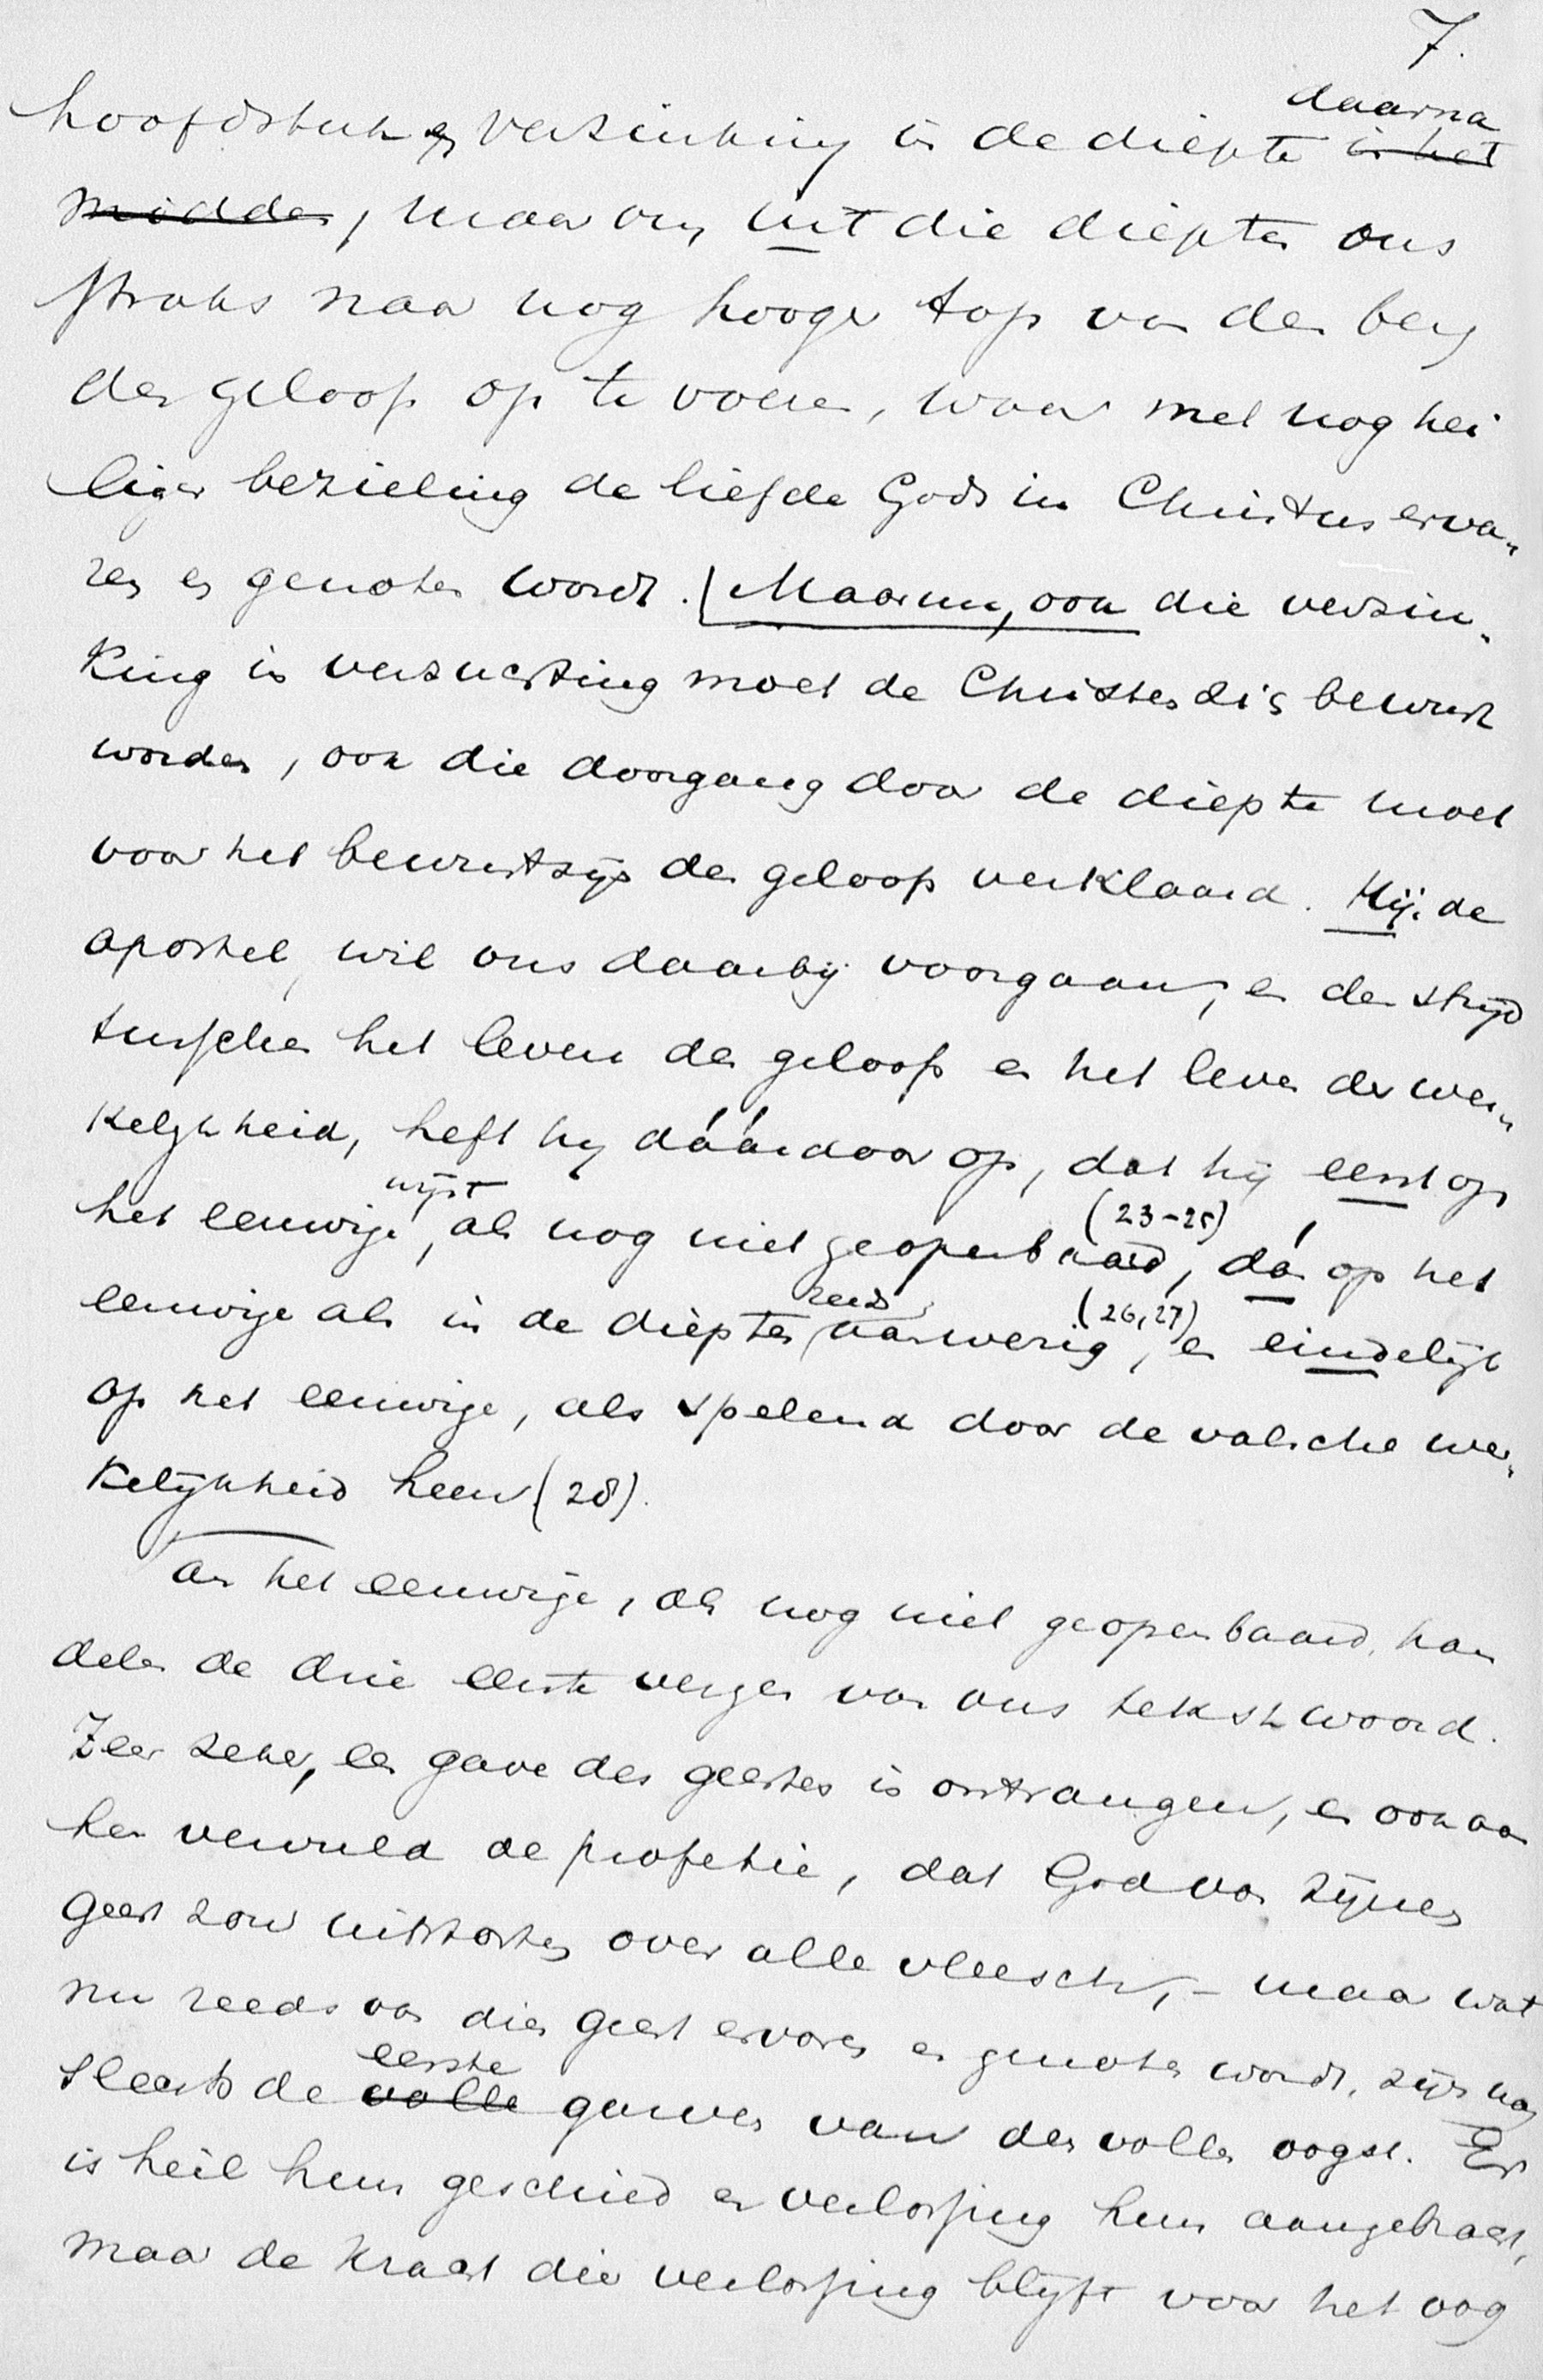 7.
hoofdstuk en verzinking in de diepte daarna in het
midden, maar om uit die diepten ons
straks naar nog hooger top van den berg
des geloofs op te voeren, waar met nog hei
liger bezieling de liefde Gods in Christus erva-
ren en genoten wordt. Maar nu, ook die verzin-
king in verzuchting moet de Christen zich bewust
worden, ook die doorgang door de diepte moet
voor het bewustzijn des geloofs verklaard. Hij, de
apostel, wil ons daarbij voorgaan, en den strijd
tusschen het leven des geloofs en het leven der wer-
kelijkheid, heft hij dáárdoor op, dat hij eerst op
het eeuwige wijst, als nog niet geopenbaard (23-25), dán op het
eeuwige als in de diepten reeds aanwezig (26, 27), en eindelijk
op het eeuwige, als spelend door de valsche wer-
kelijkheid heen (28).
Van het eeuwige, als nog niet geopenbaard, han
delen de drie eerste verzen van ons tekstwoord.
Zeer zeker, een gave des geestes is ontvangen, en ook aan
hen vervuld de profetie, dat God van Zijnen
geest zou uitstorten over alle vleesch, - maar wat
nu reeds van dien geest ervaren en genoten wordt, zijn nog
slechts de volle eerste garven van den vollen oogst. Er
is heil hun geschied en verlossing hun aangebracht,
maar de kracht dier verlossing blijft voor het oog